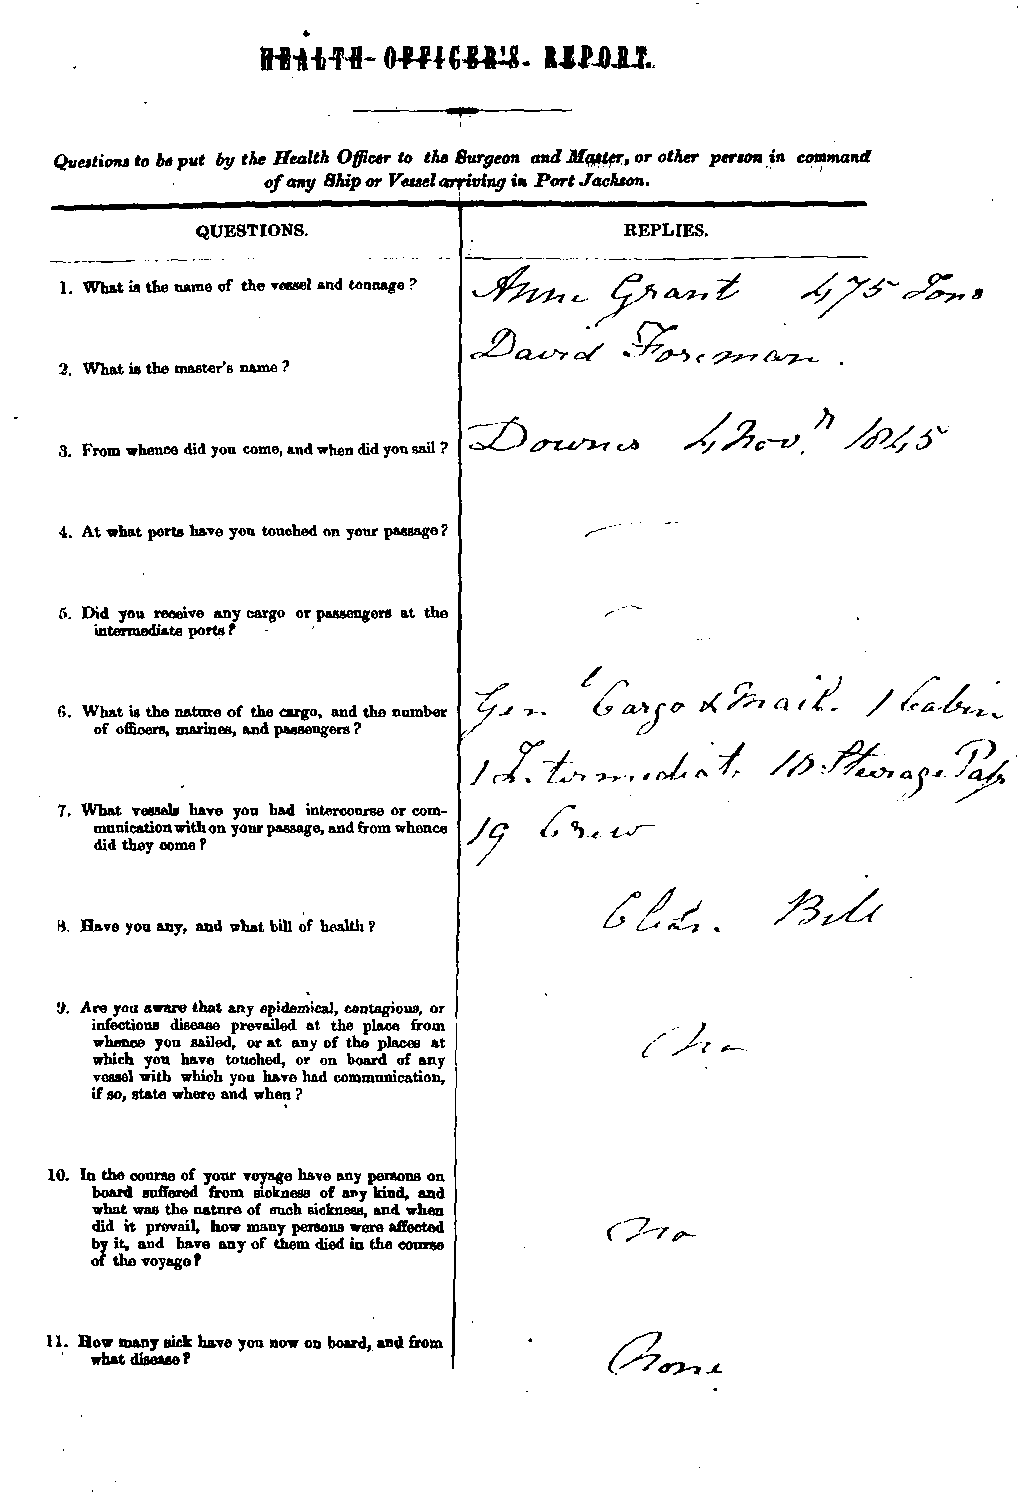 HEALTH-OFFICER'S REPORT.
Questions to be put by the Health Officer to the Surgeon and Master, or other person in command
of any Ship or Vessel arriving in Port Jackson.
QUESTIONS.
REPLIES.
1. What is the name of the vessel and tonnage?
Anne Grant 475 Tons
2. What is the master's name?
David Foreman.
3. From whence did you come, and when did you sail?
Downs 4 Nov.r 1845
4. At what ports have you touched on your passage?
—
5. Did you receive any cargo or passengers at the
intermediate ports?
—
6. What is the nature of the cargo, and the number
of officers, marines, and passengers?
Gen l Cargo & Mail. 1 Cabin
1 Intermediate 18 Steerage Pass
19 Crew
7. What vessels have you had intercourse or com-
munication with on your passage, and from whence
did they come?
8. Have you any, and what bill of health?
Bill
9. Are you aware that any epidemical, contagious, or
infectious disease prevailed at the place from
whence you sailed, or at any of the places at
which you have touched, or on board of any
vessel with which you have had communication,
if so, state where and when?
No
10. In the course of your voyage have any persons on
board suffered from sickness of any kind, and
what was the nature of such sickness, and when
did it prevail, how many persons were affected
by it, and have any of them died in the course
of the voyage?
No
11. How many sick have you now on board, and from
what disease?
None